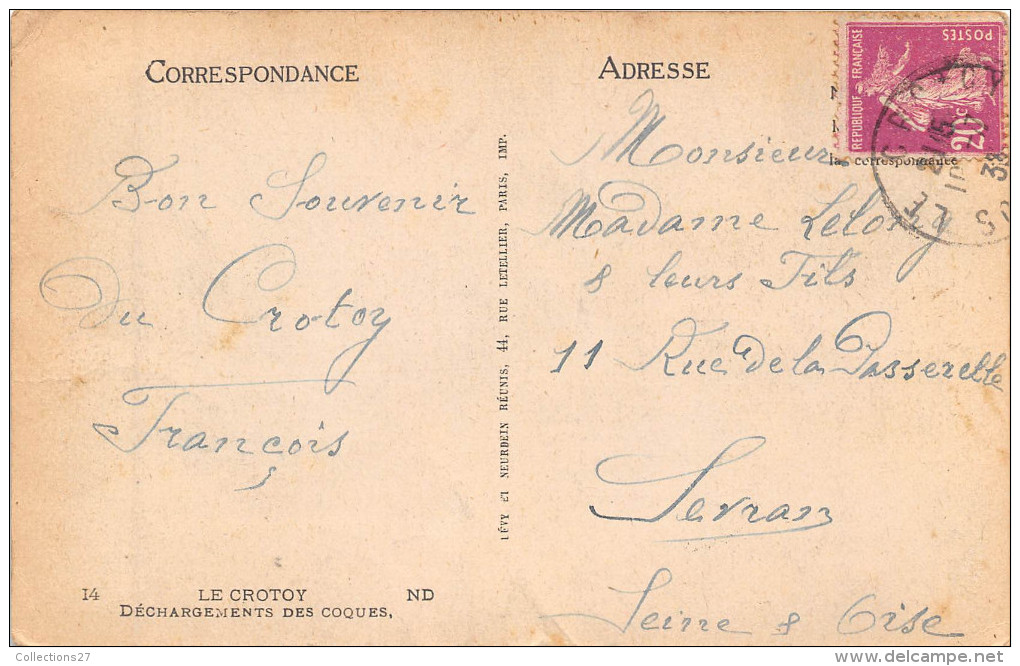 CORRESPONDANCE
Bon Souvenir
Du Crotoy
François
14 LE CROTOY ND
DÉCHARGEMENTS DES COQUES,
LÉVY ET NEURDEIN RÉUNIS, 44, RUE LETELLIER, PARIS, IMP.
ADRESSE
REPUBLIQUE FRANÇAISE
POSTES
20c
la correspondance
LE CROTOY
21 45
38
Monsieur
Madame Lelory
& leurs Fils
11 Rue de la Passerelle
Sevran
Seine & Oise
Collections27
www.delcampe.net